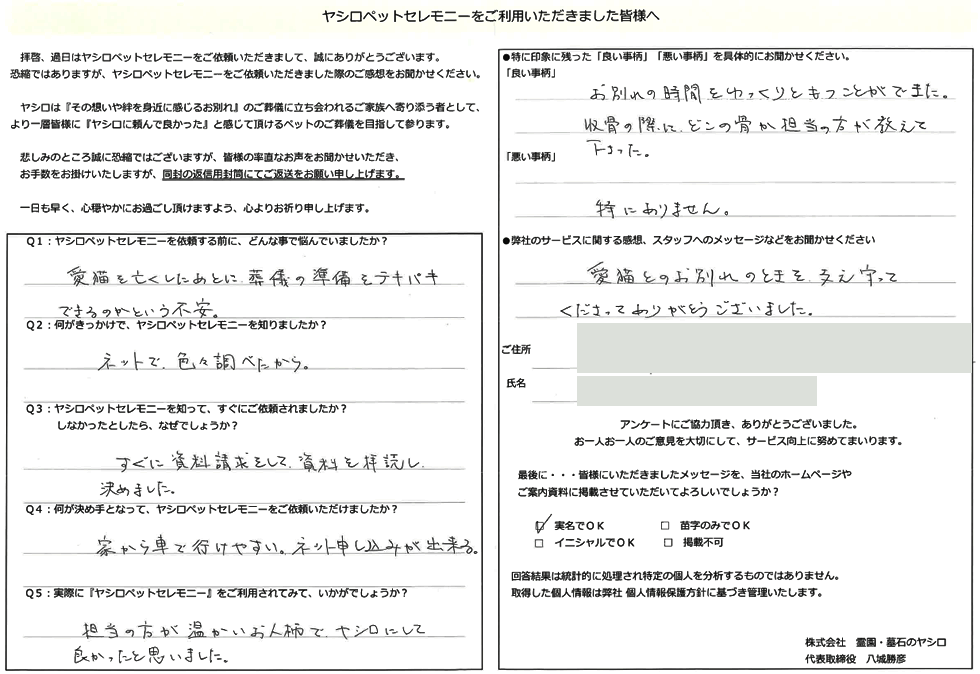 ヤシロペットセレモニーをご利用いただきました皆様へ
拝啓、過日はヤシロペットセレモニーをご依頼いただきまして、誠にありがとうございます。
恐縮ではありますが、ヤシロペットセレモニーをご依頼いただきました際のご感想をお聞かせください。
ヤシロは『その想いや絆を身近に感じるお別れ』のご葬儀に立ち会われるご家族へ寄り添う者として、
より一層皆様に『ヤシロに頼んで良かった』と感じて頂けるペットのご葬儀を目指して参ります。
悲しみのところ誠に恐縮ではございますが、皆様の率直なお声をお聞かせいただき、
お手数をお掛けいたしますが、同封の返信用封筒にてご返送をお願い申し上げます。
一日も早く、心穏やかにお過ごし頂けますよう、心よりお祈り申し上げます。
Q1：ヤシロペットセレモニーを依頼する前に、どんな事で悩んでいましたか？
愛猫を亡くしたあとに、葬儀の準備をテキパキ
できるのかという不安。
Q2：何がきっかけで、ヤシロペットセレモニーを知りましたか？
ネットで、色々調べたから。
Q3：ヤシロペットセレモニーを知って、すぐにご依頼されましたか？
しなかったとしたら、なぜでしょうか？
すぐに資料請求をして、資料を拝読し、
決めました。
Q4：何が決め手となって、ヤシロペットセレモニーをご依頼いただけましたか？
家から車で行けやすい。ネット申し込みが出来る。
Q5：実際に『ヤシロペットセレモニー』をご利用されてみて、いかがでしょうか？
担当の方が温かいお人柄で、ヤシロにして
良かったと思いました。
●特に印象に残った「良い事柄」「悪い事柄」を具体的にお聞かせください。
「良い事柄」
お別れの時間をゆっくりともつことができました。
収骨の際に、どこの骨か担当の方が教えて
下さった。
「悪い事柄」
特にありません。
●弊社のサービスに関する感想、スタッフへのメッセージなどをお聞かせください
愛猫とのお別れのときを、支え守って
くださってありがとうございました。
ご住所
氏名
アンケートにご協力頂き、ありがとうございました。
お一人お一人のご意見を大切にして、サービス向上に努めてまいります。
最後に・・・皆様にいただきましたメッセージを、当社のホームページや
ご案内資料に掲載させていただいてよろしいでしょうか？
☑ 実名でＯＫ □ 苗字のみでＯＫ
□ イニシャルでＯＫ □ 掲載不可
回答結果は統計的に処理され特定の個人を分析するものではありません。
取得した個人情報は弊社 個人情報保護方針に基づき管理いたします。
株式会社 霊園・墓石のヤシロ
代表取締役 八城勝彦